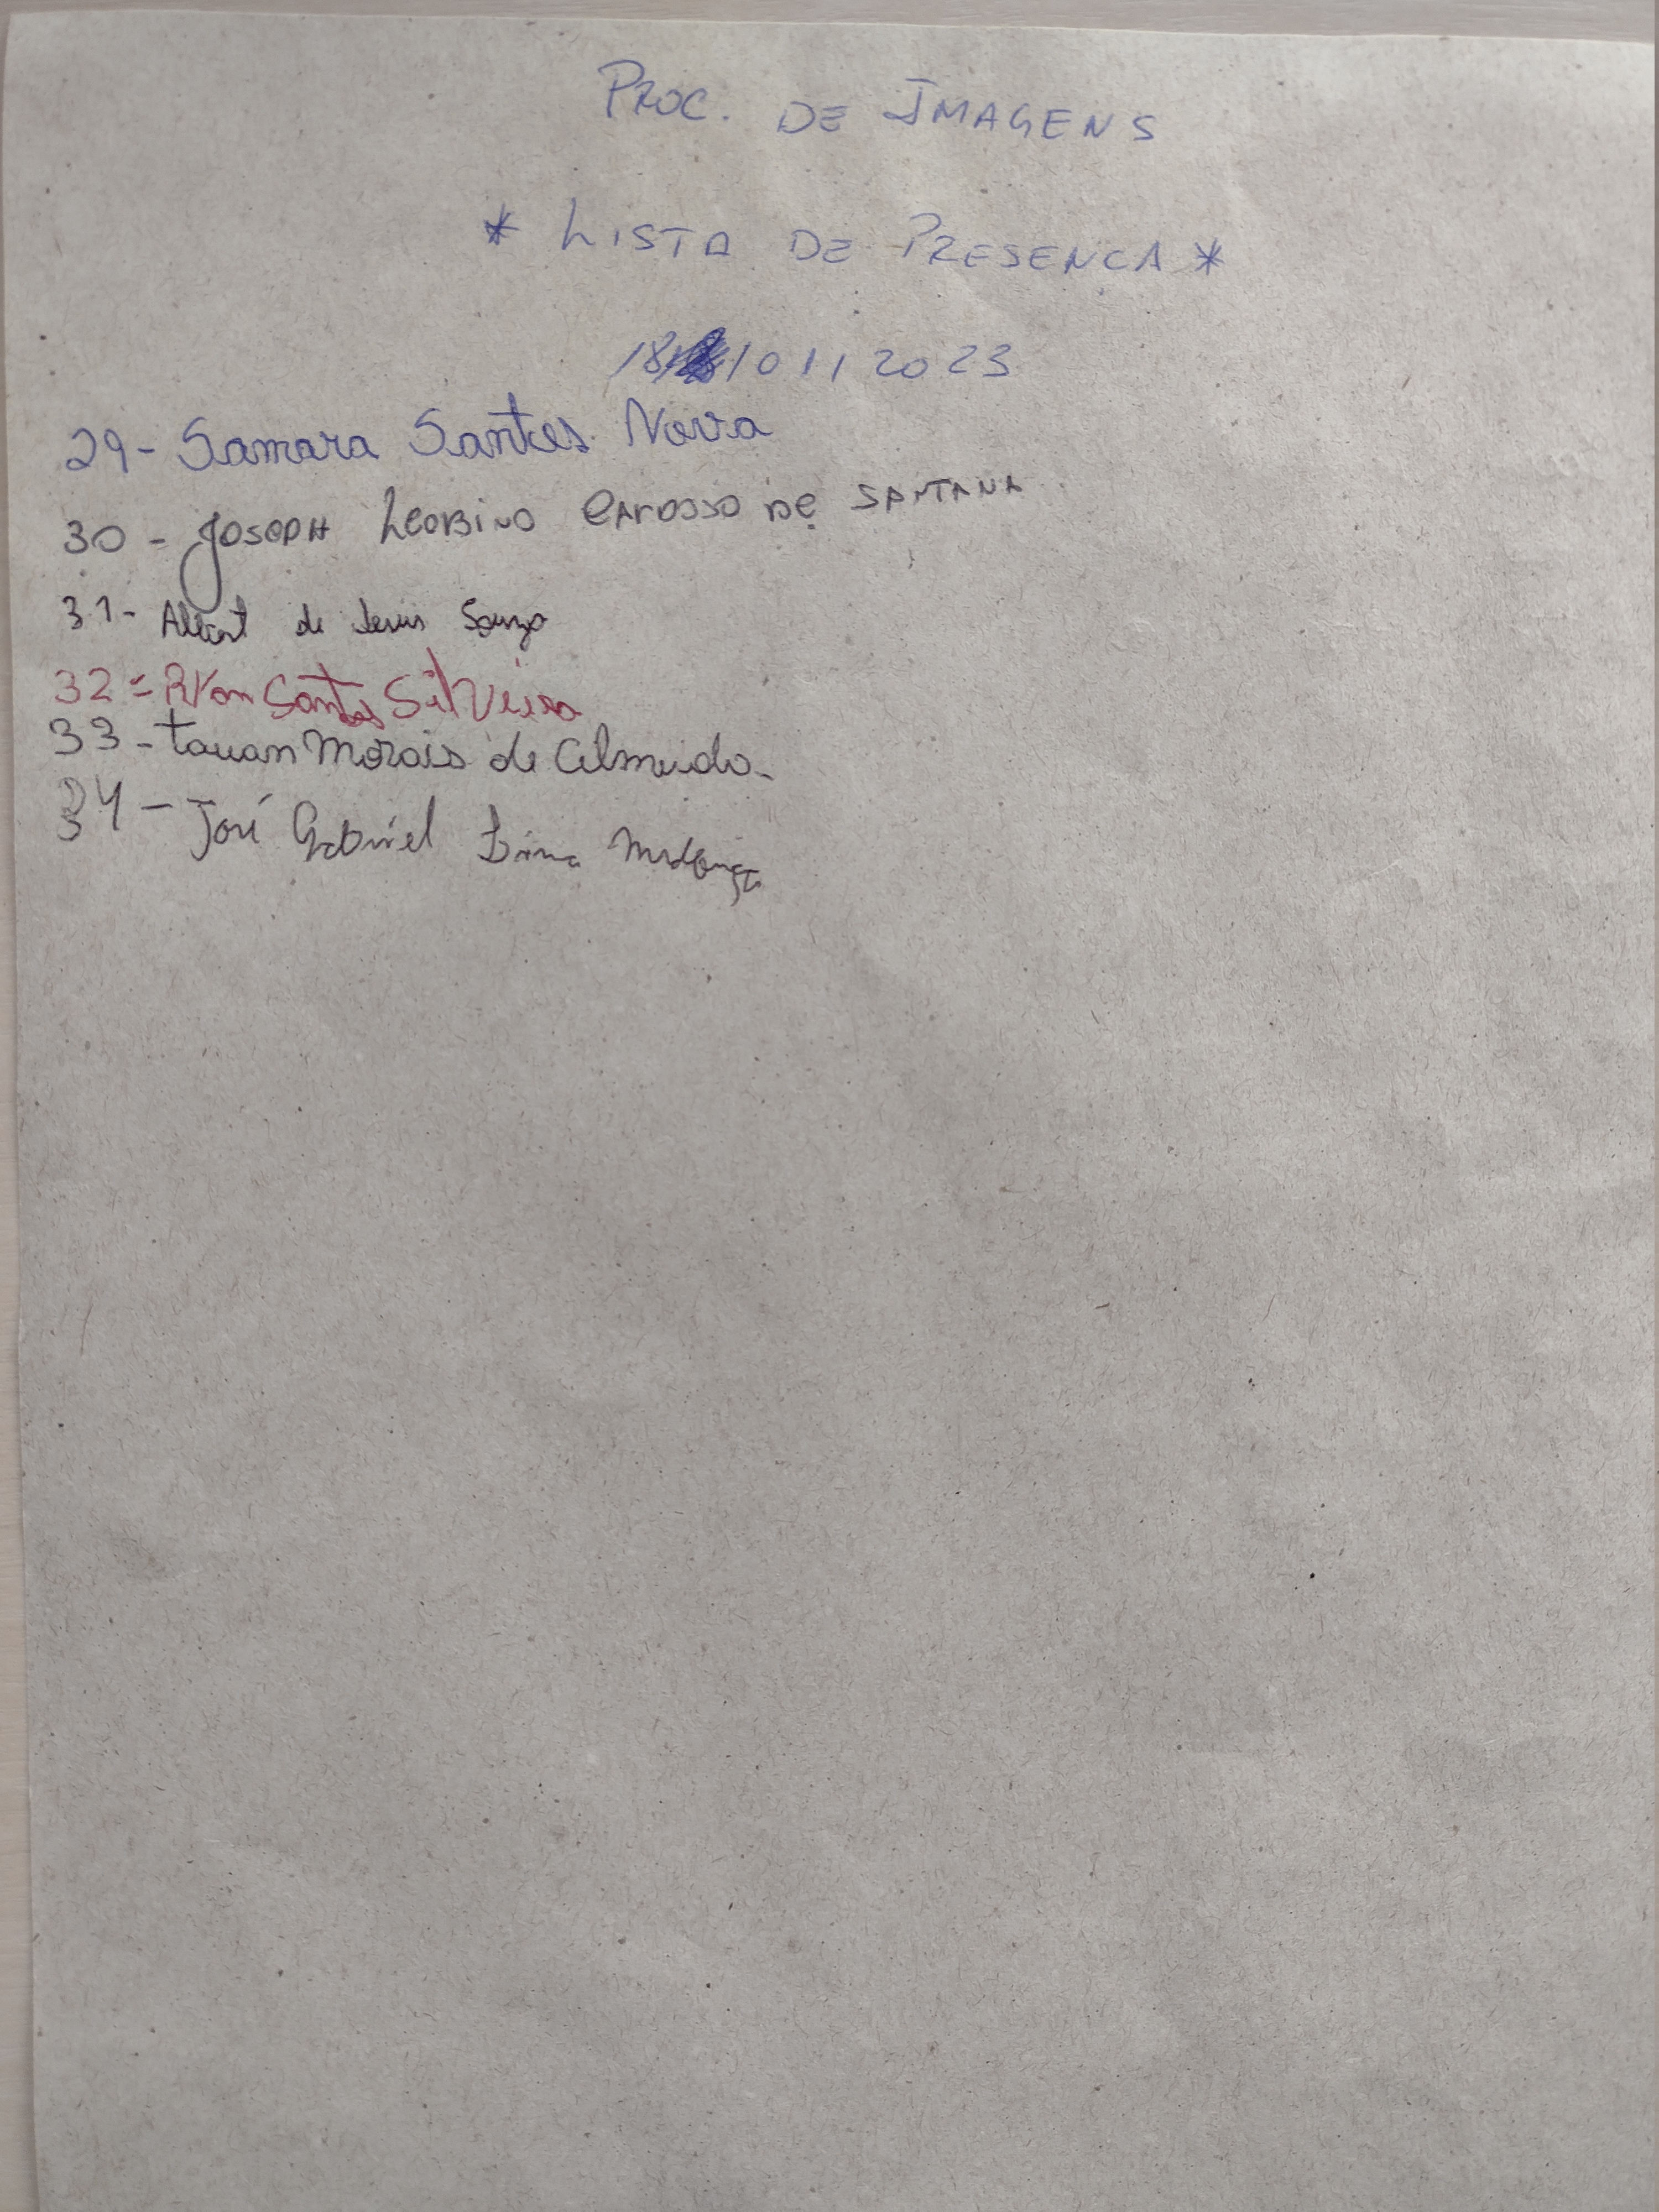 PROC. DE IMAGENS
* LISTA DE PRESENÇA *
18/01/2023
29- Samara Santos Novra
30 - JOSEPH LEOBINO CARDOSO DE SANTANA
31- Albert de Jesus Souza
32 - Rian Santos Silveira
33 - tauan Morais de Almeida
34 - José Gabriel Lima Mendonça